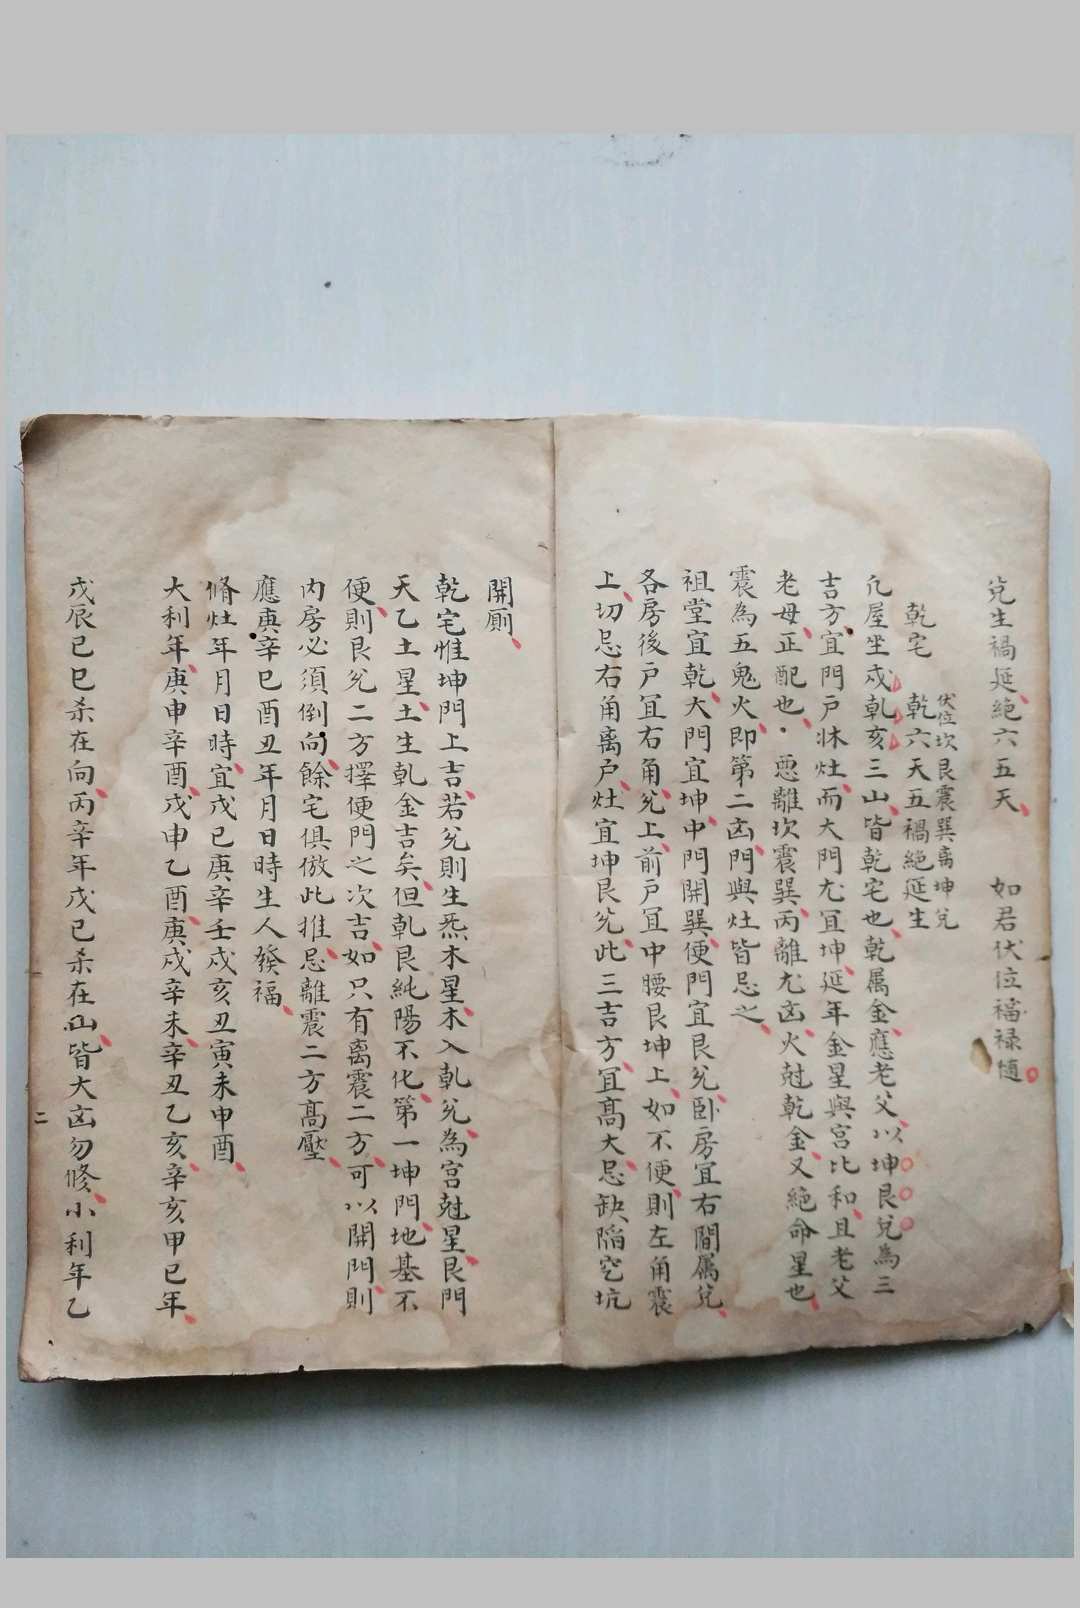 兌生禍延絕六五天　如君伏位福祿随
伏位坎艮震巽离坤兌
乾宅　乾六天五禍絕延生
凢屋坐戍乹亥三山皆乾宅也乾属金應老父以坤艮兌為三
吉方宜門戶牀灶而大門尤宜坤延年金星與宮比和且老父
老母正配也惡離坎震巽丙離尤凶火尅乾金又絕命星也
震為五鬼火即第二凶門與灶皆忌之
祖堂宜乾大門宜坤中門開巽便門宜艮兌卧房宜右間属兌
各房後戶宜右角兌上前戶宜中腰艮坤上如不便則左角震
上切忌右角离戶灶宜坤艮兌此三吉方宜高大忌缺陷空坑
開廁
乾宅惟坤門上吉若兌則生炁木星木入乹兌為宮尅星艮門
天乙土星土生乹金吉矣但乹艮純陽不化第一坤門地基不
便則艮兌二方擇便門之次吉如只有离震二方可以開門則
内房必須倒向餘宅俱倣此推忌離震二方高壓
應庚辛巳酉丑年月日時生人發福
脩灶年月日時宜戍已庚辛壬戍亥丑寅未申酉
大利年庚申辛酉戍申乙酉庚戍辛未辛丑乙亥辛亥甲巳年
戊辰已巳杀在向丙辛年戊已杀在山皆大凶勿修小利年乙
二